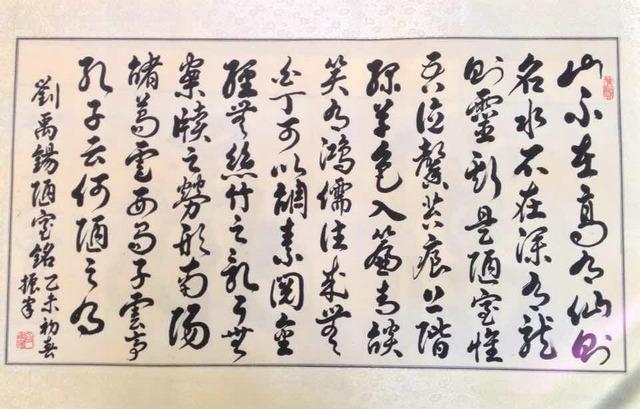 山不在高有仙則
名水不在深有龍
則靈斯是陋室惟
吾德馨苔痕上階
綠草色入簾青談
笑有鴻儒往來無
白丁可以調素閱金
經無絲竹之亂耳無
案牘之勞形南陽
諸葛廬西蜀子雲亭
孔子云何陋之有
劉禹錫陋室銘 乙未初春
振